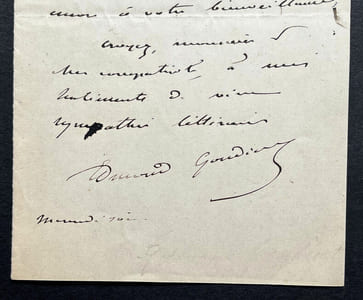 à votre bienveillance,
Croyez, monsieur &
à mes
sentiments de vive
sympathie littéraire
Edmond Gondinet
mercredi soir.